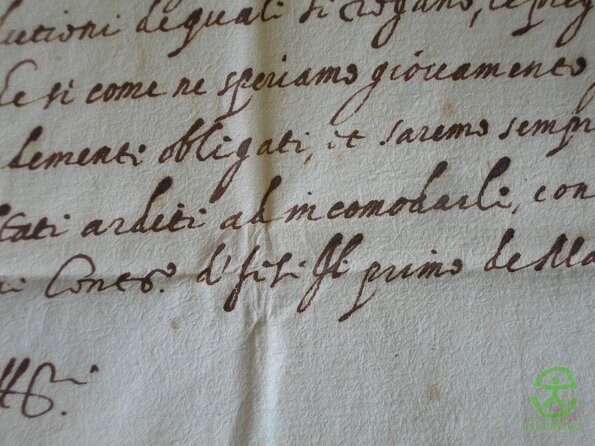 lutioni de quali si rogano, le preg
le si come ne speriamo giovamento
dementi obligati, et saremo sempr
tati arditi ad incomodarli, con
primo de Ma